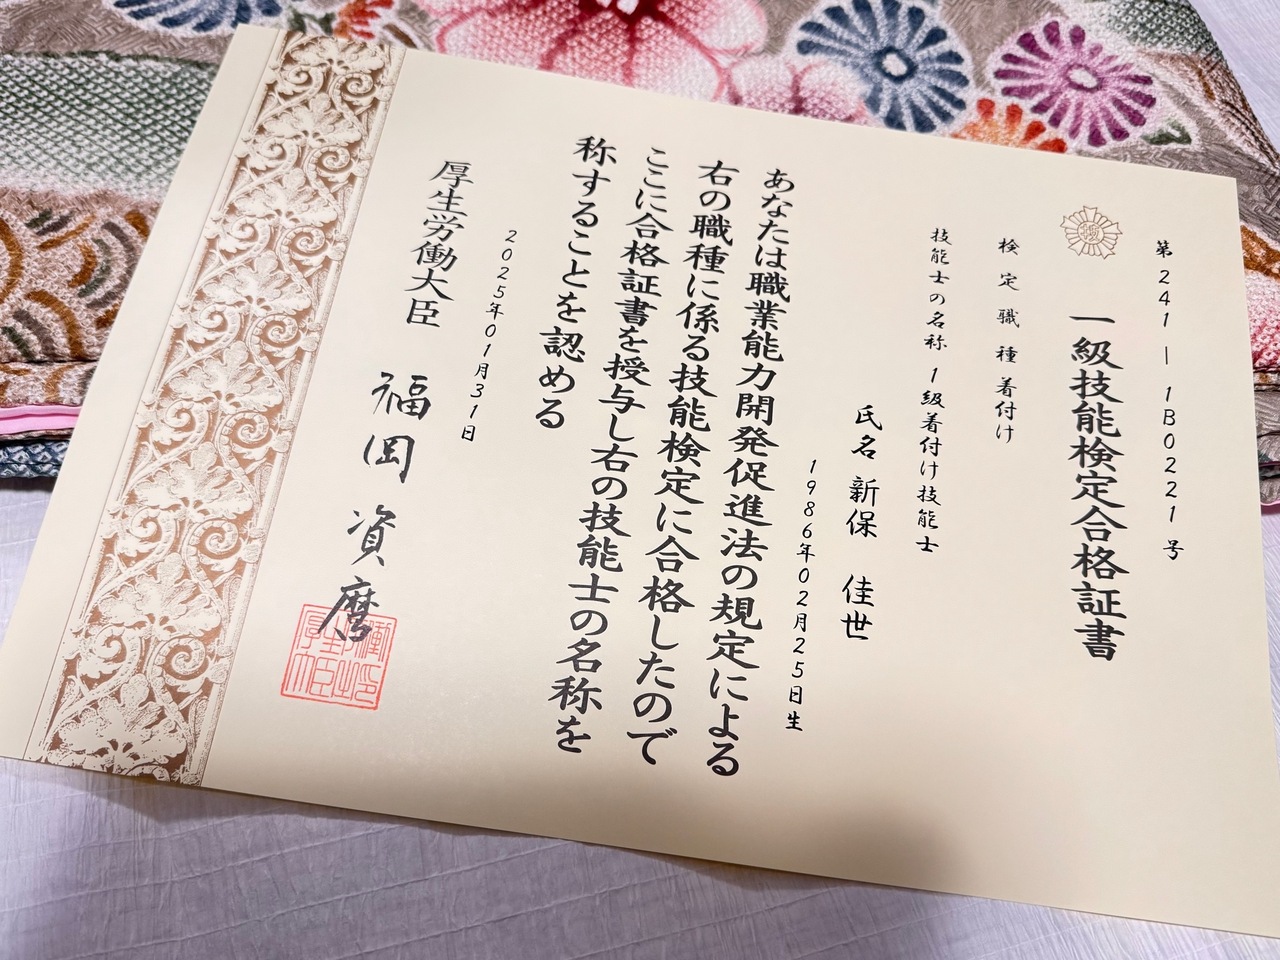 第241-1B0221号
一級技能検定合格証書
検定職種 着付け
技能士の名称 1級着付け技能士
氏名 新保 佳世
1986年02月25日生
あなたは職業能力開発促進法の規定による
右の職種に係る技能検定に合格したので
ここに合格証書を授与し右の技能士の名称を
称することを認める
2025年01月31日
厚生労働大臣 福岡 資麿